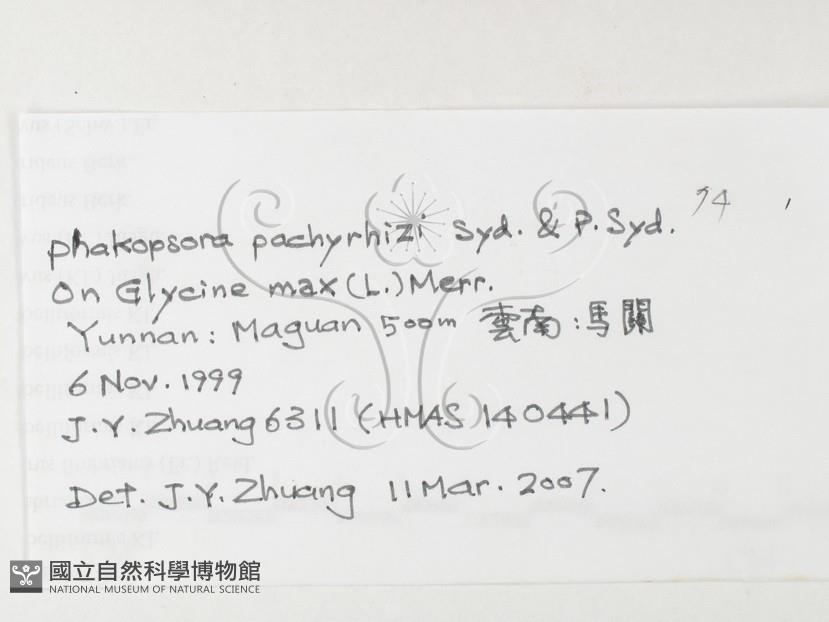 phakopsora pachyrhizi Syd. & P. Syd. 94
On Glycine max (L.) Merr.
Yunnan: Maguan 500m 雲南:馬關
6 Nov. 1999
J.Y. Zhuang 6311 (HMAS 140441)
Det. J.Y. Zhuang 11 Mar. 2007.
國立自然科學博物館
NATIONAL MUSEUM OF NATURAL SCIENCE